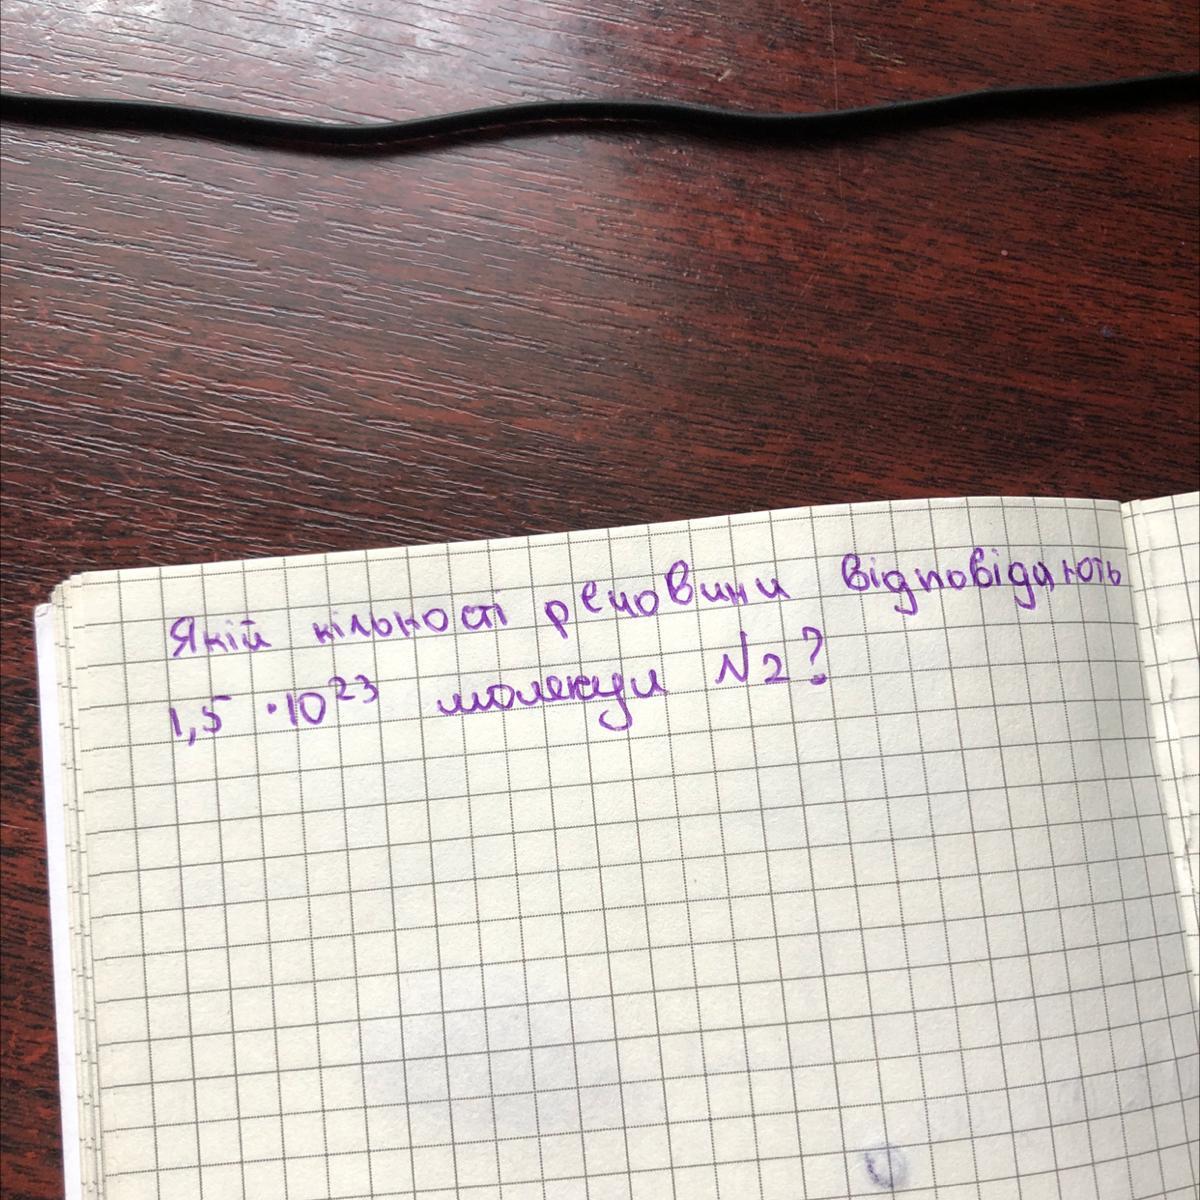 Якій кільності речовини відповідають
1,5 · 10²³ молекули N2?